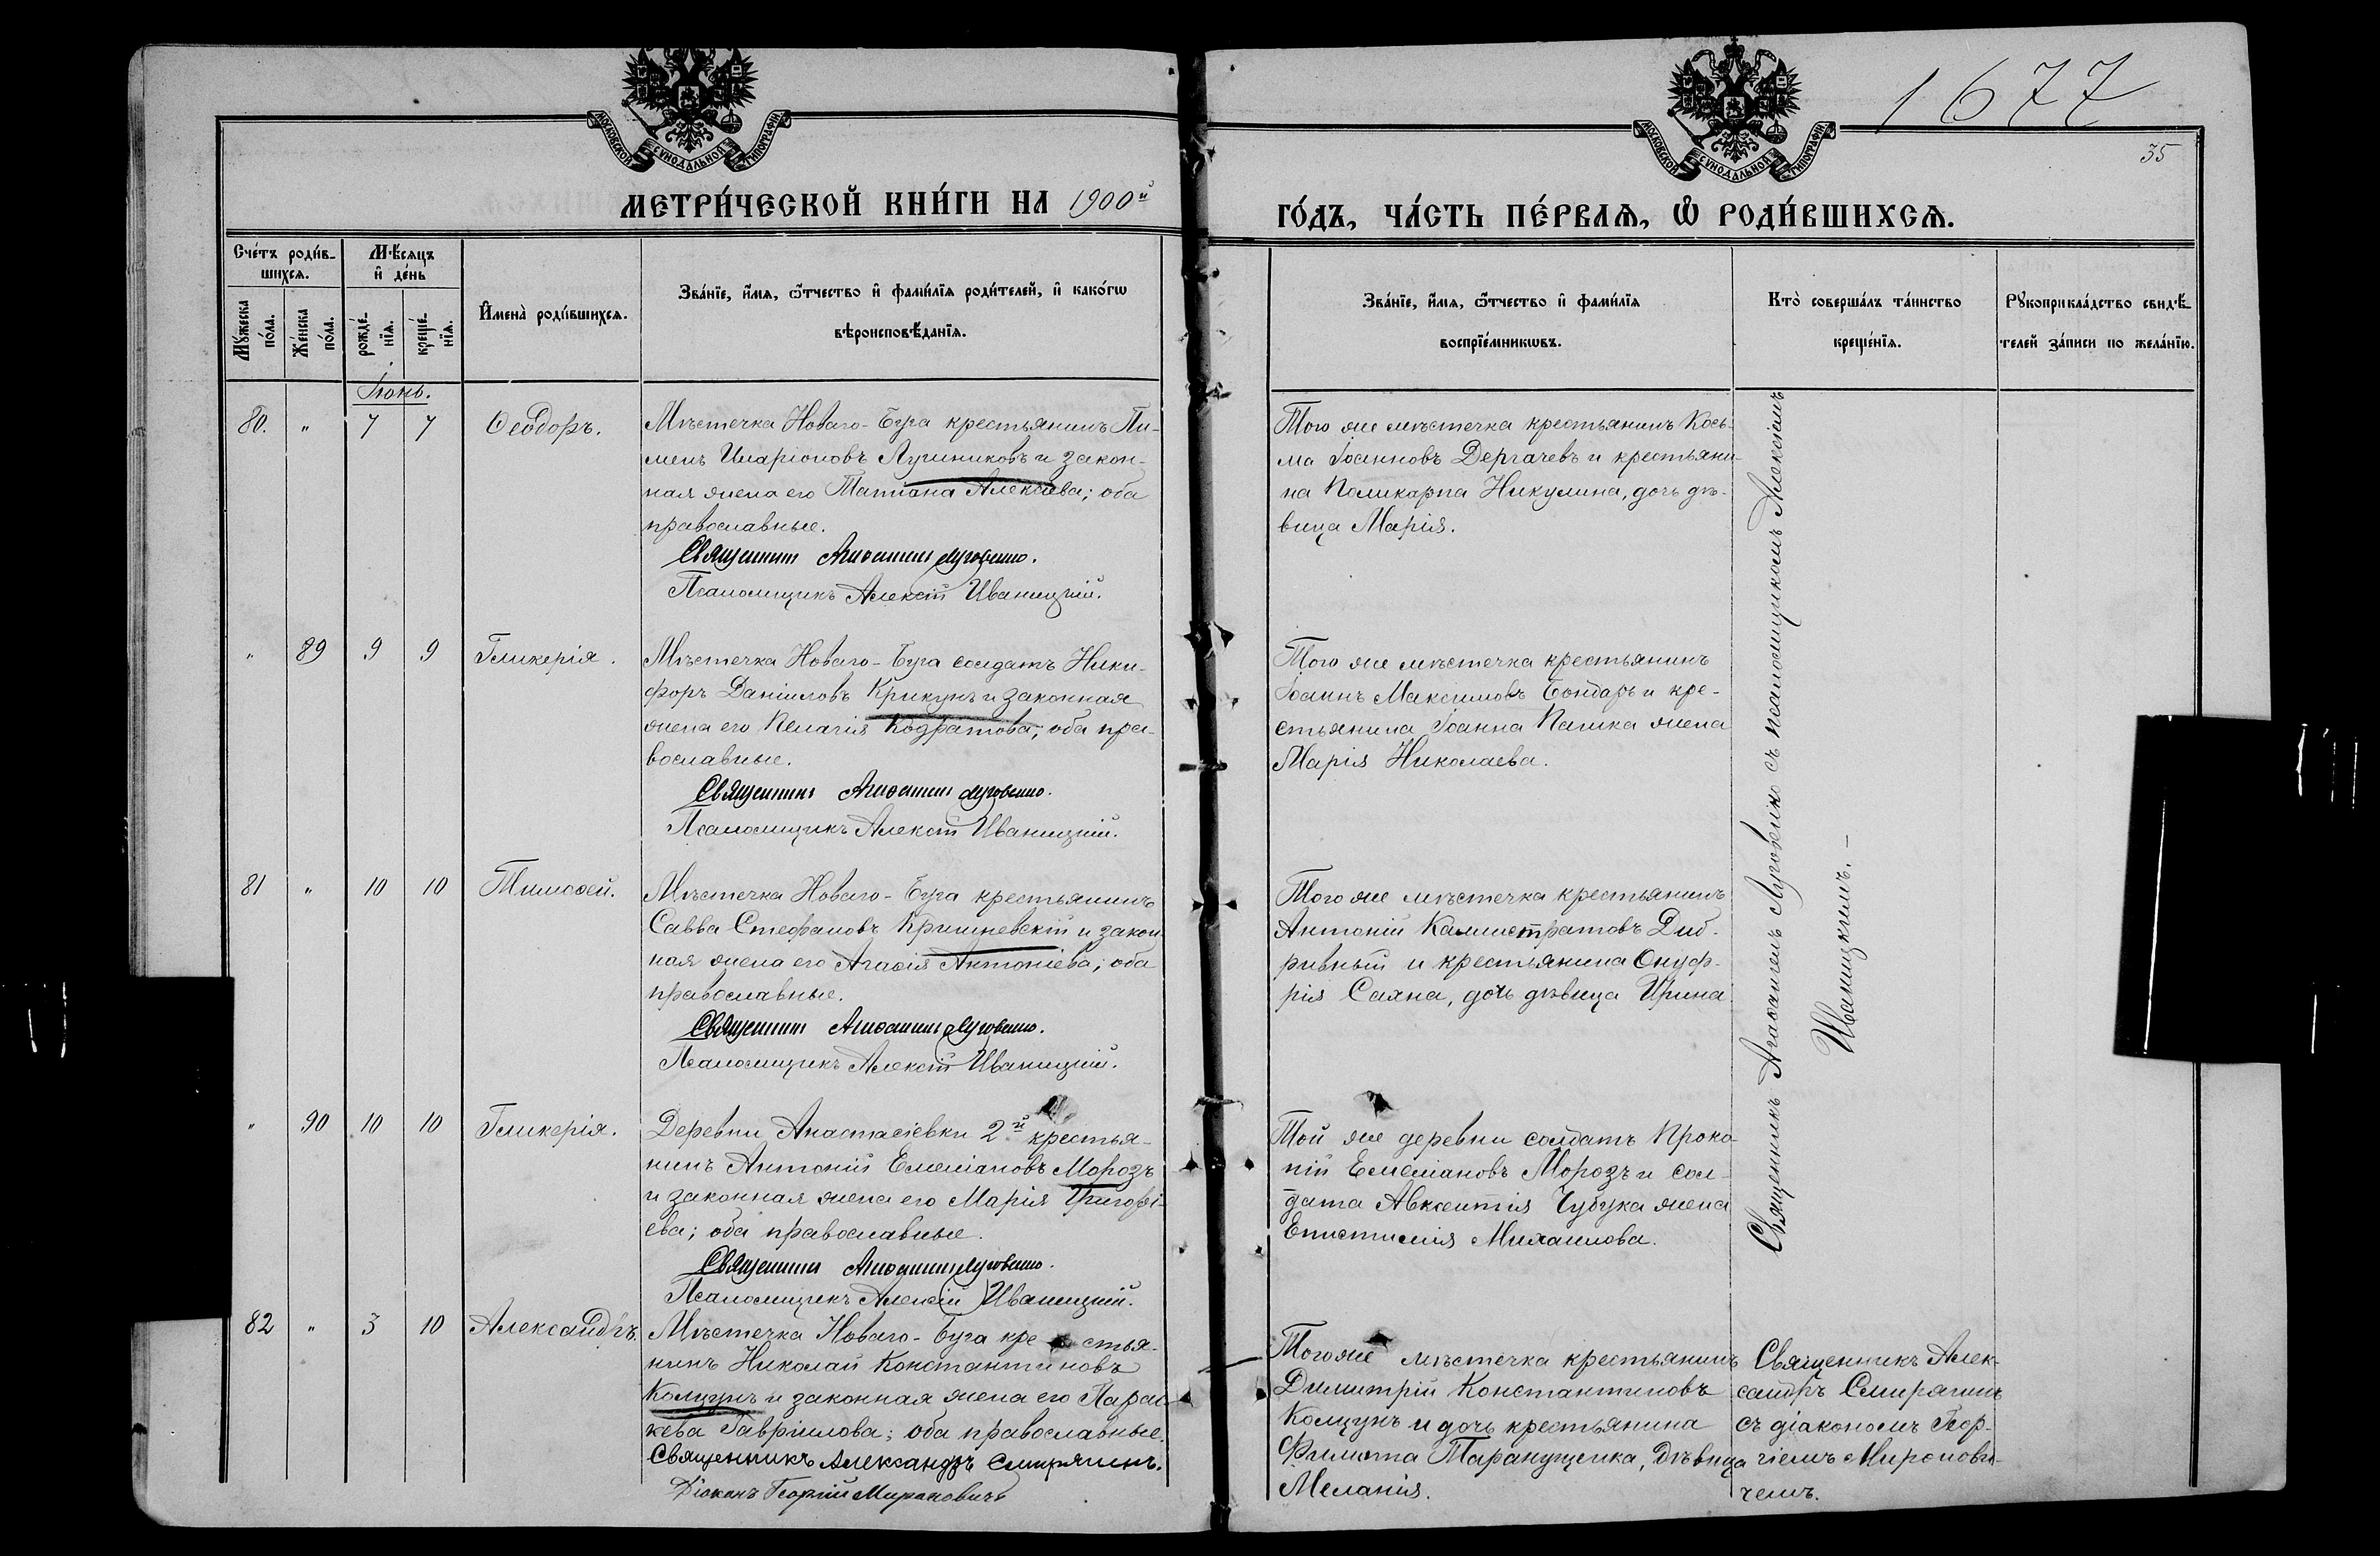 1677
35
МОСКОВСКОЙ СѴНОДАЛЬНОЙ ТИПОГРАФІИ
МОСКОВСКОЙ СѴНОДАЛЬНОЙ ТИПОГРАФІИ
МЕТРИ́ЧЕСКОЙ КНИ́ГИ НА 1900й
ГО́ДЪ, ЧА́СТЬ ПЕ́РВАѦ, Ѽ РОДИ́ВШИХСѦ.
Сче́тъ роди́в-
шихсѧ.
Мꙋ́жеска
по́ла.
Же́нска
по́ла.
Мѣ́сѧцъ
и҆ де́нь
рожде́-
нїѧ.
креще́-
нїѧ.
И҆мена̀ роди́вшихсѧ.
Зва́нїе, и҆́мѧ, ѻ҆́тчество и҆ фами́лїѧ роди́телей, и҆ како́гѡ
вѣроисповѣ́данїѧ.
Зва́нїе, и҆́мѧ, ѻ҆́тчество и҆ фами́лїѧ
воспрїе́мникѡвъ.
Кто̀ соверша́лъ та́инство
креще́нїѧ.
Рꙋкоприкла́дство свидѣ́-
телей за́писи по жела́нїю.
Іюнь.
80. " 7 7 Ѳеодоръ.
Мѣстечка Новаго-Буга крестьянинъ Пи-
менъ Иларіоновъ Лучниковъ и закон-
ная жена его Татіана Алексѣева; оба
православные.
Священникъ Агаѳангелъ Луговенко.
Псаломщикъ Алексій Иваницкій.
Того же мѣстечка крестьянинъ Кось-
ма Іоанновъ Дергачевъ и крестьяни-
на Поликарпа Никулина, дочь дѣ-
вица Марія.
Священникъ Агаѳангелъ Луговенко съ псаломщикомъ Алексіемъ
Иваницкимъ. —
" 89 9 9 Гликерія.
Мѣстечка Новаго-Буга солдатъ Ники-
форъ Даніиловъ Крикунъ и законная
жена его Пелагія Кодратова; оба пра-
вославные.
Священникъ Агаѳангелъ Луговенко.
Псаломщикъ Алексій Иваницкій.
Того же мѣстечка крестьянинъ
Іоаннъ Максимовъ Бондарь и кре-
стьянина Іоанна жена
Марія Николаева.
81 " 10 10 Тимоѳей.
Мѣстечка Новаго-Буга крестьянинъ
Савва Стефановъ Кришневскій и закон
ная жена его Агаѳія Антоніева; оба
православные.
Священникъ Агаѳангелъ Луговенко.
Псаломщикъ Алексій Иваницкій.
Того же мѣстечка крестьянинъ
Антоній Каллистратовъ Диб-
ривный и крестьянина Онуф-
рія Саяна, дочь дѣвица Ирина
" 90 10 10 Гликерія.
Деревни Анастасіевки 2й крестья-
нинъ Антоній Емеліановъ Морозъ
и законная жена его Марія Григорі-
ева; оба православные.
Священникъ Агаѳангелъ Луговенко.
Псаломщикъ Алексій Иваницкій.
Той же деревни солдатъ Проко-
пій Емеліановъ Морозъ и сол-
дата Авксентія Чубука жена
Епистимія Михаилова.
82 " 3 10 Александръ.
Мѣстечка Новаго-Буга кре стья-
нинъ Николай Константиновъ
Колцунъ и законная жена его Парас-
кева Гавріилова; оба православные.
Священникъ Александръ Смирягинъ.
Діаконъ Георгій Мироновичъ
Того же мѣстечка крестьянинъ
Димитрій Константиновъ
Колцунъ и дочь крестьянина
Филиппа Таранущенка, дѣвица
Меланія.
Священникъ Алек-
сандръ Смирягинъ
съ діакономъ Геор-
гіемъ Мироновы-
чемъ.